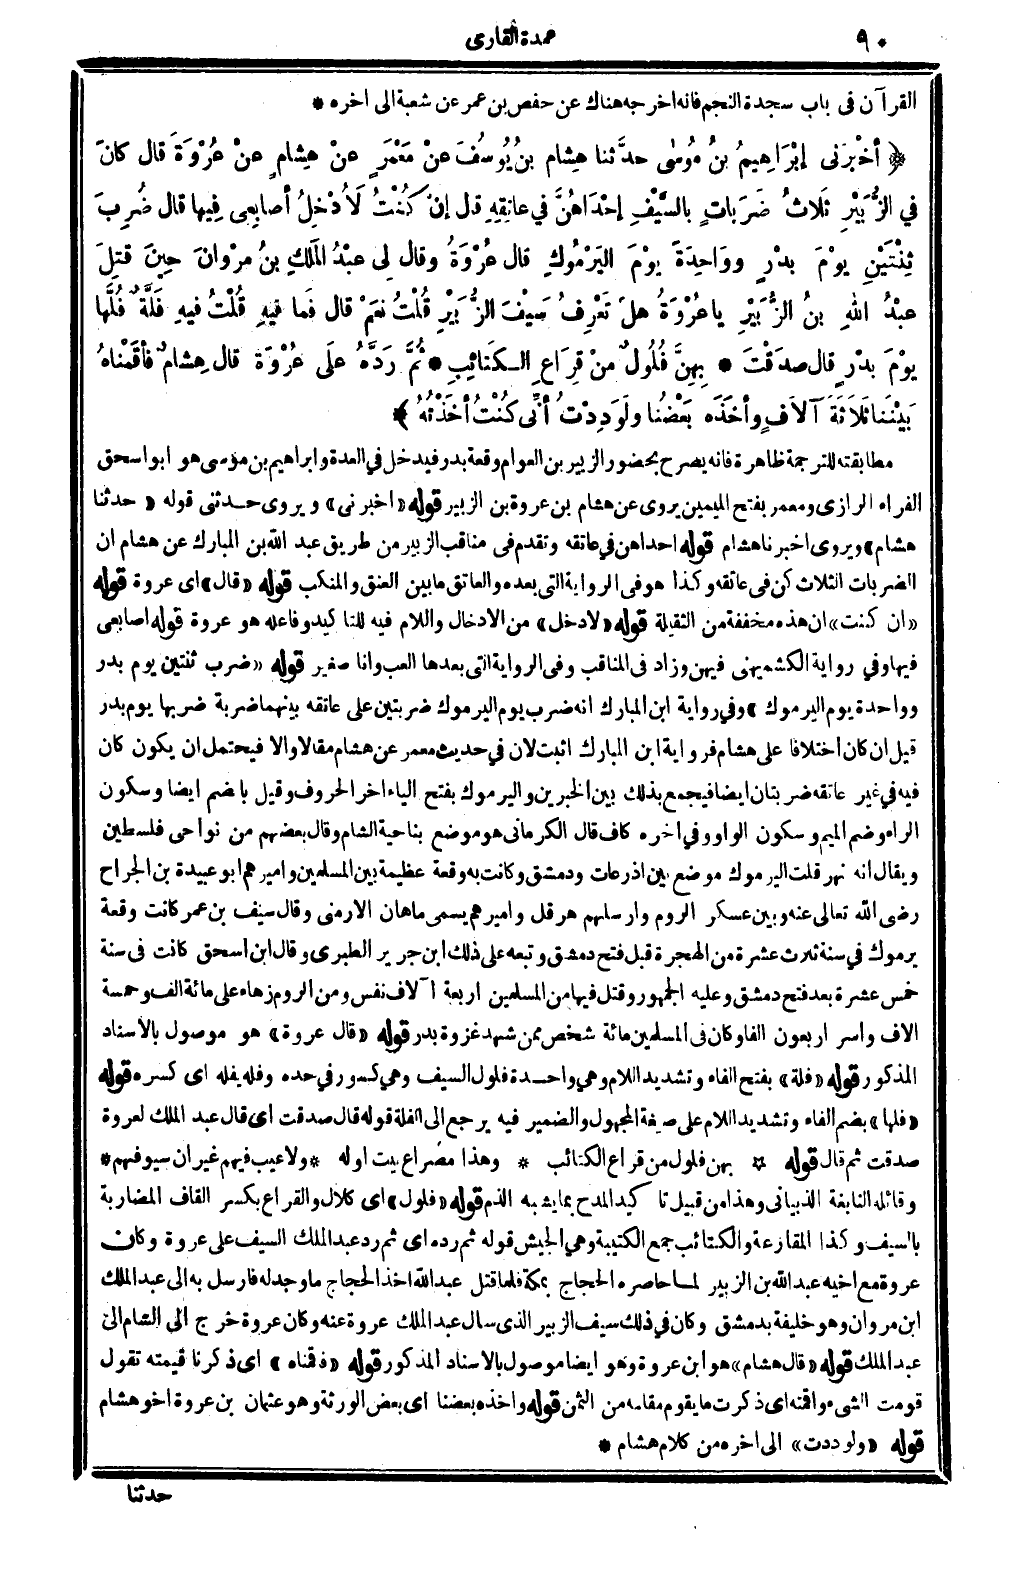 ٩٠
عمدة القارى
القرآن فى باب سجدة النجم فانه اخرجه هناك عن حفص بن عمر عن شعبة الى اخره *
﴿ أخْبرَنى إبْرَاهِيمُ بنُ مُوسٰى حدَّثنا هِشام بنُ يُوسُفَ عنْ مَعْمَرٍ عنْ هِشامٍ عنْ عُرْوَةَ قال كانَ
في الزُّبَيْرِ ثَلاثُ ضَرَباتٍ بالسَّيْفِ إحْدَاهُنَّ في عاتِقِهِ قال إنْ كُنْتُ لَأُدْخِلُ أصابِعِى فِيها قال ضُرِبَ
ثِنْتَيْنِ يوْمَ بدْرٍ ووَاحِدَةً يوْمَ اليَرْمُوكِ قال عُرْوَةُ وقال لِى عبْدُ المَلكِ بنُ مرْوانَ حِينَ قتِلَ
عبْدُ اللهِ بنُ الزُّبَيْرِ ياعُرْوَةُ هلْ تَعْرِفُ سَيْفَ الزُّبَيْرِ قُلْتُ نعَمْ قال فَما فيهِ قُلْتُ فيهِ فَلَّةٌ فُلَّها
يوْمَ بدْرٍ قال صدَقْتَ * بِهِنَّ فُلُولٌ منْ قِرَاعِ الكَتائِبِ * ثُمَّ رَدَّهُ علَى عُرْوَةَ قال هِشامٌ فأقَمْناهُ
بَيْنَنا ثَلَاثَةَ آلافٍ وأخَذَه بَعْضُنا ولَوَدِدْتُ أنِّى كُنْتُ أخَذْتُهُ ﴾
مطابقته للترجمة ظاهرة فانه يصرح بحضور الزبير بن العوام وقعة بدر فيدخل في العدة وابراهيم بن موسى هو ابو اسحق
الفراء الرازى ومعمر بفتح الميمين يروى عن هشام بن عروة بن الزبير قوله «اخبرنى» ويروى حدثنى قوله « حدثنا
هشام» ويروى اخبرنا هشام قوله احداهن في عاتقه وتقدم فى مناقب الزبير من طريق عبد الله بن المبارك عن هشام ان
الضربات الثلاث كن فى عاتقه وكذا هو فى الرواية التى بعده والعاتق ما بين العنق والمنكب قوله «قال» اى عروة قوله
«ان كنت» ان هذه مخففة من الثقيلة قوله «لادخل» من الادخال واللام فيه للتاكيد وفاعله هو عروة قوله اصابعى
فيها وفي رواية الكشميهنى فيهن وزاد فى المناقب وفى الرواية التى بعدها العب وانا صغير قوله «ضرب ثنتين يوم بدر
وواحدة يوم اليرموك » وفي رواية ابن المبارك انه ضرب يوم اليرموك ضربتين على عاتقه بينهما ضربة ضربها يوم بدر
قيل ان كان اختلافا على هشام فرواية ابن المبارك اثبت لان في حديث معمر عن هشام مقالا والا فيحتمل ان يكون كان
فيه في غير عاتقه ضربتان ايضا فيجمع بذلك بين الخبرين واليرموك بفتح الياء اخر الحروف وقيل بالضم ايضا وسكون
الراء وضم الميم وسكون الواو وفي اخره كاف قال الكرمانى هو موضع بناحية الشام وقال بعضهم من نواحى فلسطين
ويقال انه نهر قلت اليرموك موضع بين اذرعات ودمشق وكانت به وقعة عظيمة بين المسلمين واميرهم ابو عبيدة بن الجراح
رضى الله تعالى عنه وبين عسكر الروم وارسلهم هرقل واميرهم يسمى ماهان الارمنى وقال سيف بن عمر كانت وقعة
يرموك في سنة ثلاث عشرة من الهجرة قبل فتح دمشق وتبعه على ذلك ابن جرير الطبرى وقال ابن اسحق كانت فى سنة
خمس عشرة بعد فتح دمشق وعليه الجمهور وقتل فيها من المسلمين اربعة آلاف نفس ومن الروم زهاء على مائة الف وخمسة
الاف واسر اربعون الفا وكان فى المسلمين مائة شخص ممن شهد غزوة بدر قوله «قال عروة» هو موصول بالاسناد
المذكور قوله «فلة» بفتح الفاء وتشديد اللام وهي واحدة فلول السيف وهي كسور في حده وفله يفله اى كسره قوله
«فلها» بضم الفاء وتشديد اللام على صيغة المجهول والضمير فيه يرجع الى الفلة قوله قال صدقت اى قال عبد الملك لعروة
صدقت ثم قال قوله * بهن فلول من قراع الكتائب * وهذا مصراع بيت اوله *ولا عيب فيهم غير ان سيوفهم*
وقائله النابغة الذبيانى وهذا من قبيل تاكيد المدح بما يشبه الذم قوله «فلول» اى كلال والقراع بكسر القاف المضاربة
بالسيف وكذا المقارعة والكتائب جمع الكتيبة وهي الجيش قوله ثم رده اى ثم رد عبد الملك السيف على عروة وكان
عروة مع اخيه عبد الله بن الزبير لما حاصره الحجاج بمكة فلما قتل عبد الله اخذ الحجاج ما وجد له فارسل به الى عبد الملك
ابن مروان وهو خليفة بدمشق وكان في ذلك سيف الزبير الذى سال عبد الملك عروة عنه وكان عروة خرج الى الشام الى
عبد الملك قوله «قال هشام» هو ابن عروة وهو ايضا موصول بالاسناد المذكور قوله «فاقمناه » اى ذكرنا قيمته تقول
قومت الشىء واقمته اى ذكرت ما يقوم مقامه من الثمن قوله واخذه بعضنا اى بعض الورثة وهو عثمان بن عروة اخو هشام
قوله «ولوددت» الى اخره من كلام هشام *
حدثنا